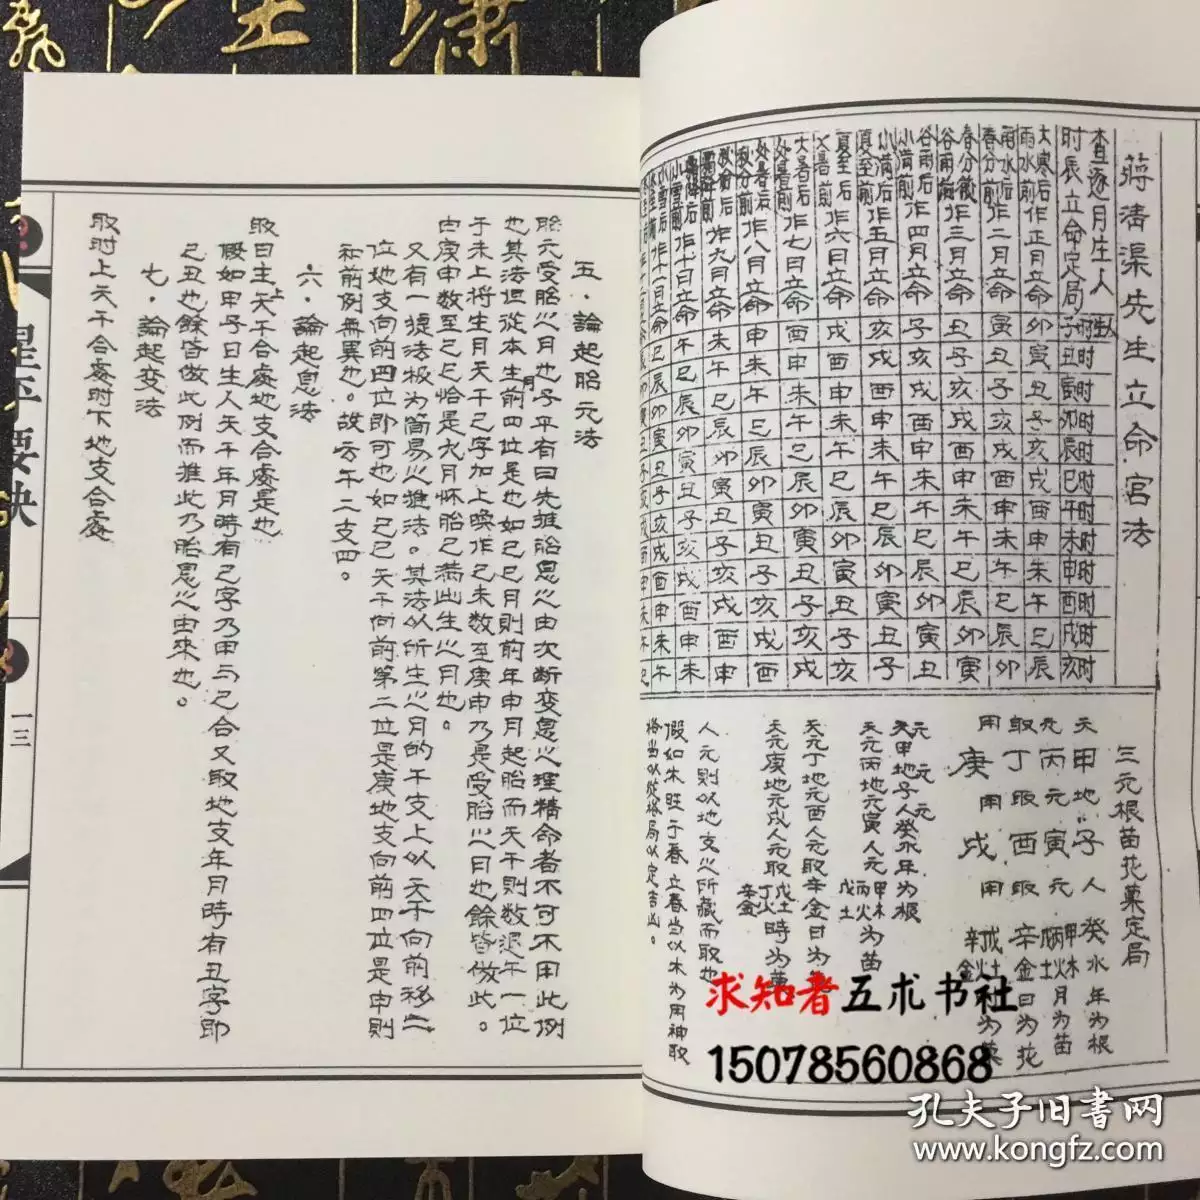 蔣清渠先生立命宮法
查逐月生人
时辰立命定局
子时 丑时 寅时 卯时 辰时 巳时 午时 未时 申时 酉时 戌时 亥时
大寒后雨水前作正月立命 卯 寅 丑 子 亥 戌 酉 申 未 午 巳 辰
雨水后春分前作二月立命 寅 丑 子 亥 戌 酉 申 未 午 巳 辰 卯
春分后谷雨前作三月立命 丑 子 亥 戌 酉 申 未 午 巳 辰 卯 寅
谷雨后小满前作四月立命 子 亥 戌 酉 申 未 午 巳 辰 卯 寅 丑
小满后夏至前作五月立命 亥 戌 酉 申 未 午 巳 辰 卯 寅 丑 子
夏至后大暑前作六月立命 戌 酉 申 未 午 巳 辰 卯 寅 丑 子 亥
大暑后处暑前作七月立命 酉 申 未 午 巳 辰 卯 寅 丑 子 亥 戌
处暑后秋分前作八月立命 申 未 午 巳 辰 卯 寅 丑 子 亥 戌 酉
作九月立命 未 午 巳 辰 卯 寅 丑 子 亥 戌 酉 申
作十月立命 午 巳 辰 卯 寅 丑 子 亥 戌 酉 申 未
三元根苗花菓定局
天甲地子人癸水年为根
元丙元寅元甲木丙火戊土月为苗
取丁取酉取辛金日为花
用庚用戌用戊土丁火辛金时为菓
元元元
天甲地子人癸水年为根
天元丙地元寅人元甲木丙火戊土为苗
天元丁地元酉人元取辛金日为
天元庚地元戌人元取戊土丁火辛金時为
人元則以地支之所藏而取也
假如木旺于春立春当以木为用神取
格当以从格局以定吉凶。
五·論起胎元法
胎元受胎之月也子平有曰先推胎息之由次断变息之理精命者不可不用此例
也其法但从本生月前四位是也如己巳月則前年申月起胎而天干則数退午一位
于未上将生月天干己字加上喚作己未数至庚申乃是受胎之日也餘皆倣此。
由庚申数至己巳恰是九月怀胎已满此生之月也。
又有一捷法极为简易之推法。其法以所生之月的干支上以天干向前移二
位地支向前四位即可也如己巳天干向前第二位是庚地支向前四位是申則
和前例無異也。故云午二支四。
六·論起息法
取日主天干上合處地支合處是也
假如甲子日生人天干年月時有己字乃甲与己合又取地支年月時有丑字即
己丑也餘皆倣此例而推此乃胎息之由來也。
七·論起变法
取时上天干合處时下地支合處
星平要訣
一三
求知者五术书社
15078560868
孔夫子旧书网
www.kongfz.com